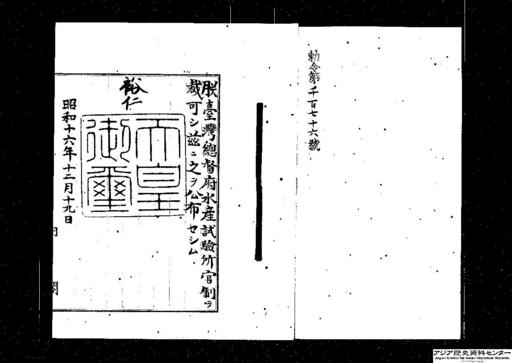 勅令第千百七十六號
朕臺灣總督府水産試驗所官制ヲ
裁可シ茲ニ之ヲ公布セシム
裕仁
天皇
御璽
昭和十六年十二月十九日
内閣
アジア歴史資料センター
Japan Center for Asian Historical Records